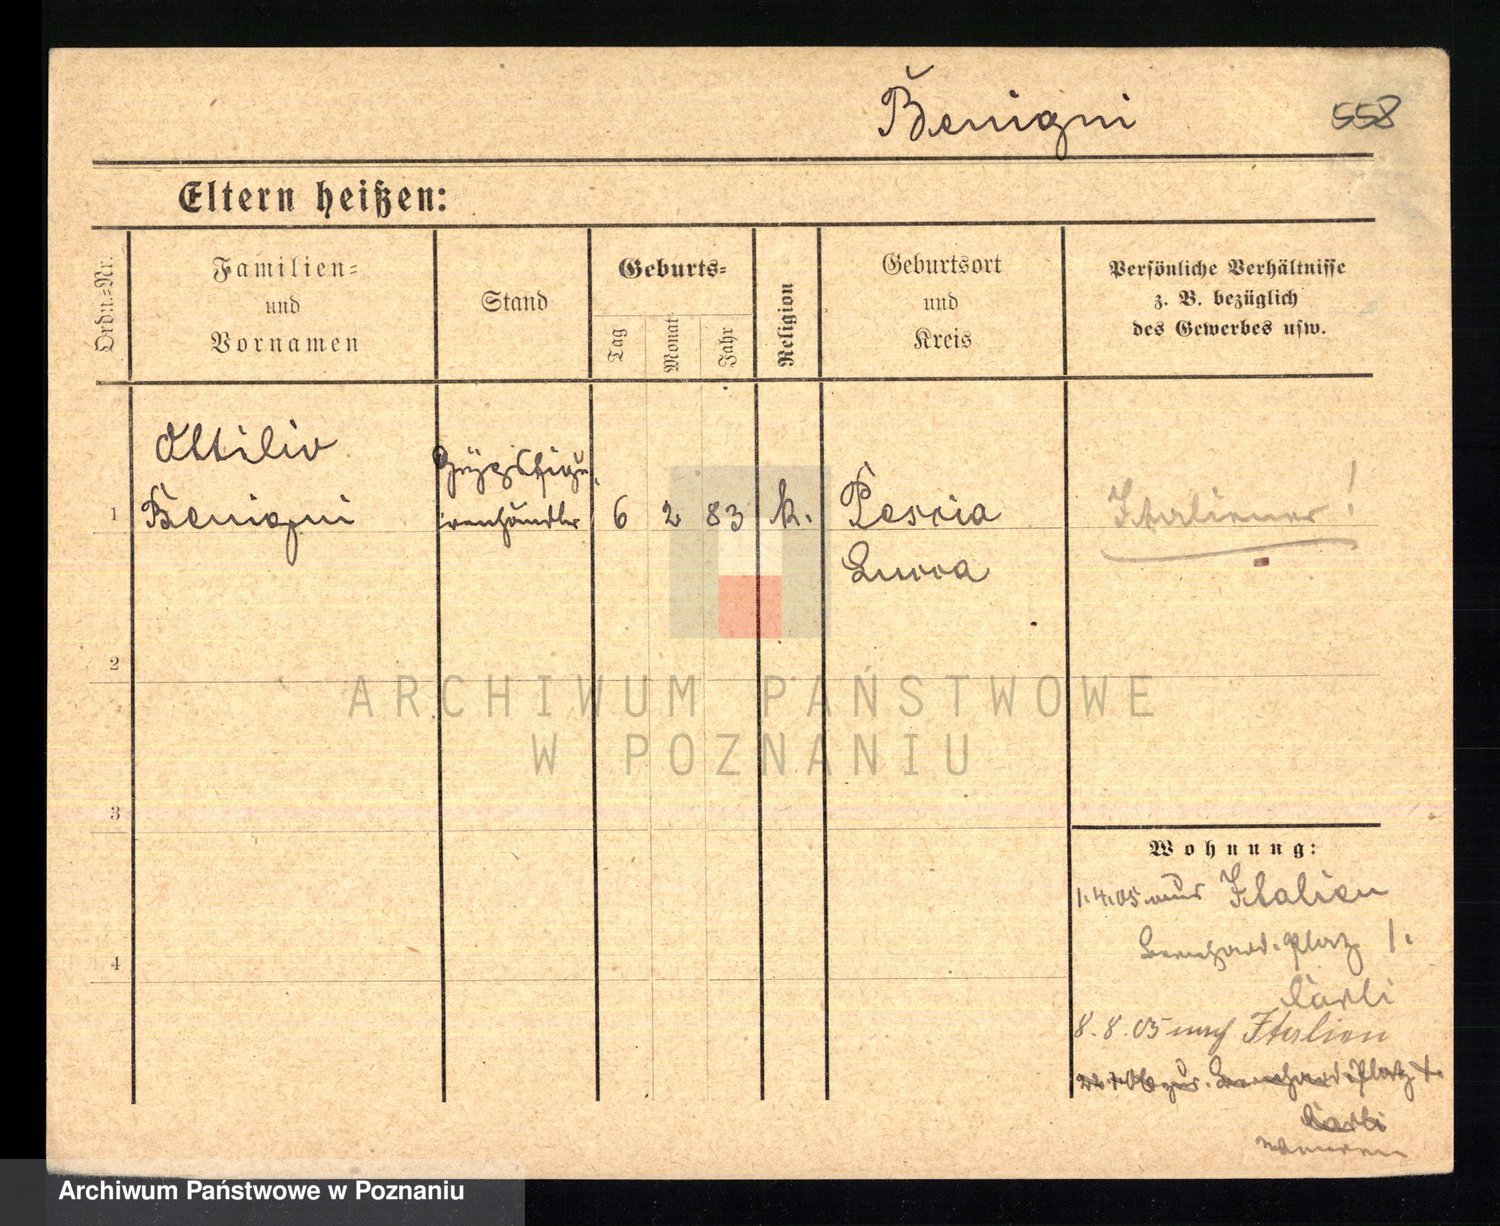 Benigni
558
Eltern heißen:
Ordn.=Nr.
Familien=
und
Vornamen
Stand
Geburts=
Tag
Monat
Jahr
Religion
Geburtsort
und
Kreis
Persönliche Verhältnisse
z. B. bezüglich
des Gewerbes usw.
1
Attilio
Benigni
Gypsfigu-
renhändler
6 2 83
k.
Pescia
Lucca
Italiener!
2
3
4
Wohnung:
1.4.05 aus Italien
Bernhard. Platz 1.
Carli
8.8.05 nach Italien
zur. Bernhard. Platz
Carli
ARCHIWUM PAŃSTWOWE
W POZNANIU
Archiwum Państwowe w Poznaniu